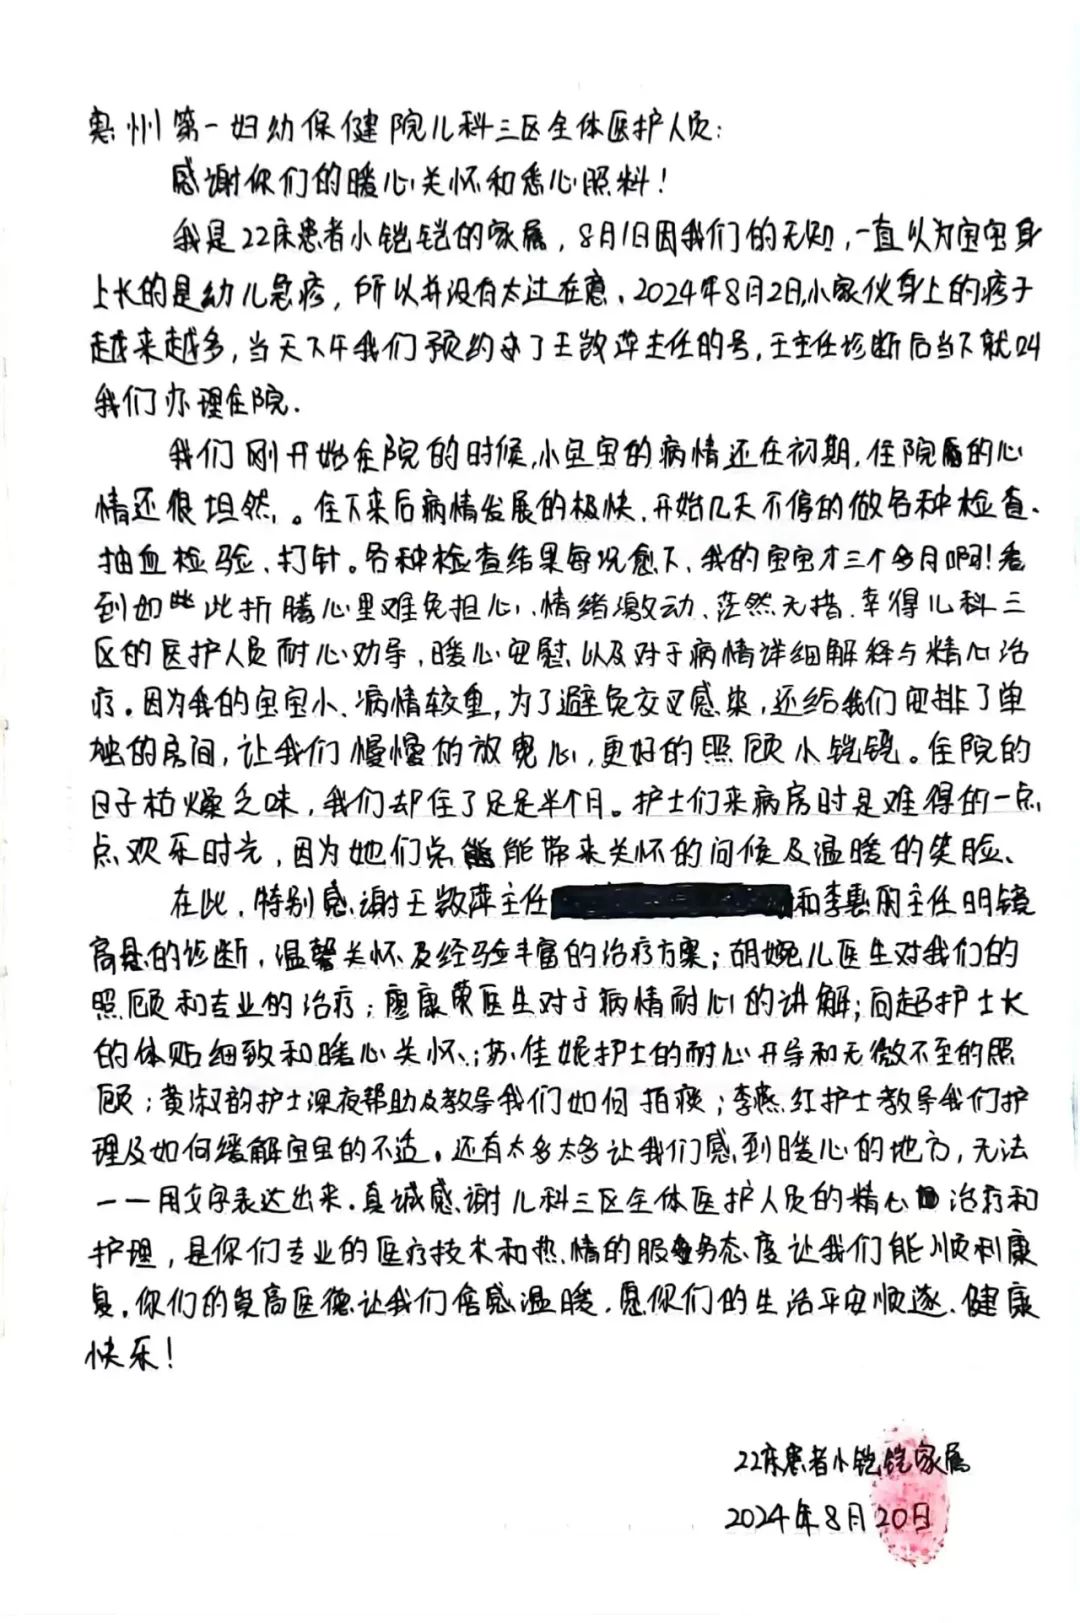 惠州第一妇幼保健院儿科三区全体医护人员:
感谢你们的暖心关怀和悉心照料!
我是22床患者小铠铠的家属,8月1日因我们的无知,一直以为宝宝身
上长的是幼儿急疹,所以并没有太过在意、2024年8月2日,小家伙身上的疹子
越来越多,当天下午我们预约了王敳萍主任的号,王主任诊断后当下就叫
我们办理住院.
我们刚开始住院的时候,小宝宝的病情还在初期,住院的心
情还很坦然,。住下来后病情发展的极快、开始几天不停的做各种检查、
抽血检验、打针。各种检查结果每况愈下、我的宝宝才三个多月啊!看
到如此此折腾心里难免担心、情绪激动、茫然无措.幸得儿科三
区的医护人员耐心劝导,暖心安慰、以及对于病情详细解释与精心治
疗.因为我的宝宝小、病情较重,为了避免交叉感染,还给我们安排了单
独的房间,让我们慢慢的放宽心,更好的照顾小铠铠。住院的
日子枯燥乏味,我们却住了足足半个月。护士们来病房时是难得的一点
点欢乐时光,因为她们总能带来关怀的问候及温暖的笑脸、
在此,特别感谢王敳萍主任和李惠明主任明镜
高悬的诊断,温馨关怀及经验丰富的治疗方案;胡婉儿医生对我们的
照顾和专业的治疗;廖康荣医生对于病情耐心的讲解;向超护士长
的体贴细致和暖心关怀;苏佳妮护士的耐心开导和无微不至的照
顾;黄淑韵护士深夜帮助及教导我们如何拍痰;李燕红护士教导我们护
理及如何缓解宝宝的不适。还有太多太多让我们感到暖心的地方,无法
一一用文字表达出来.真诚感谢儿科三区全体医护人员的精心治疗和
护理,是你们专业的医疗技术和热情的服务态度让我们能顺利康
复.你们的崇高医德让我们倍感温暖.愿你们的生活平安顺遂、健康
快乐!
22床患者小铠铠家属
2024年8月20日